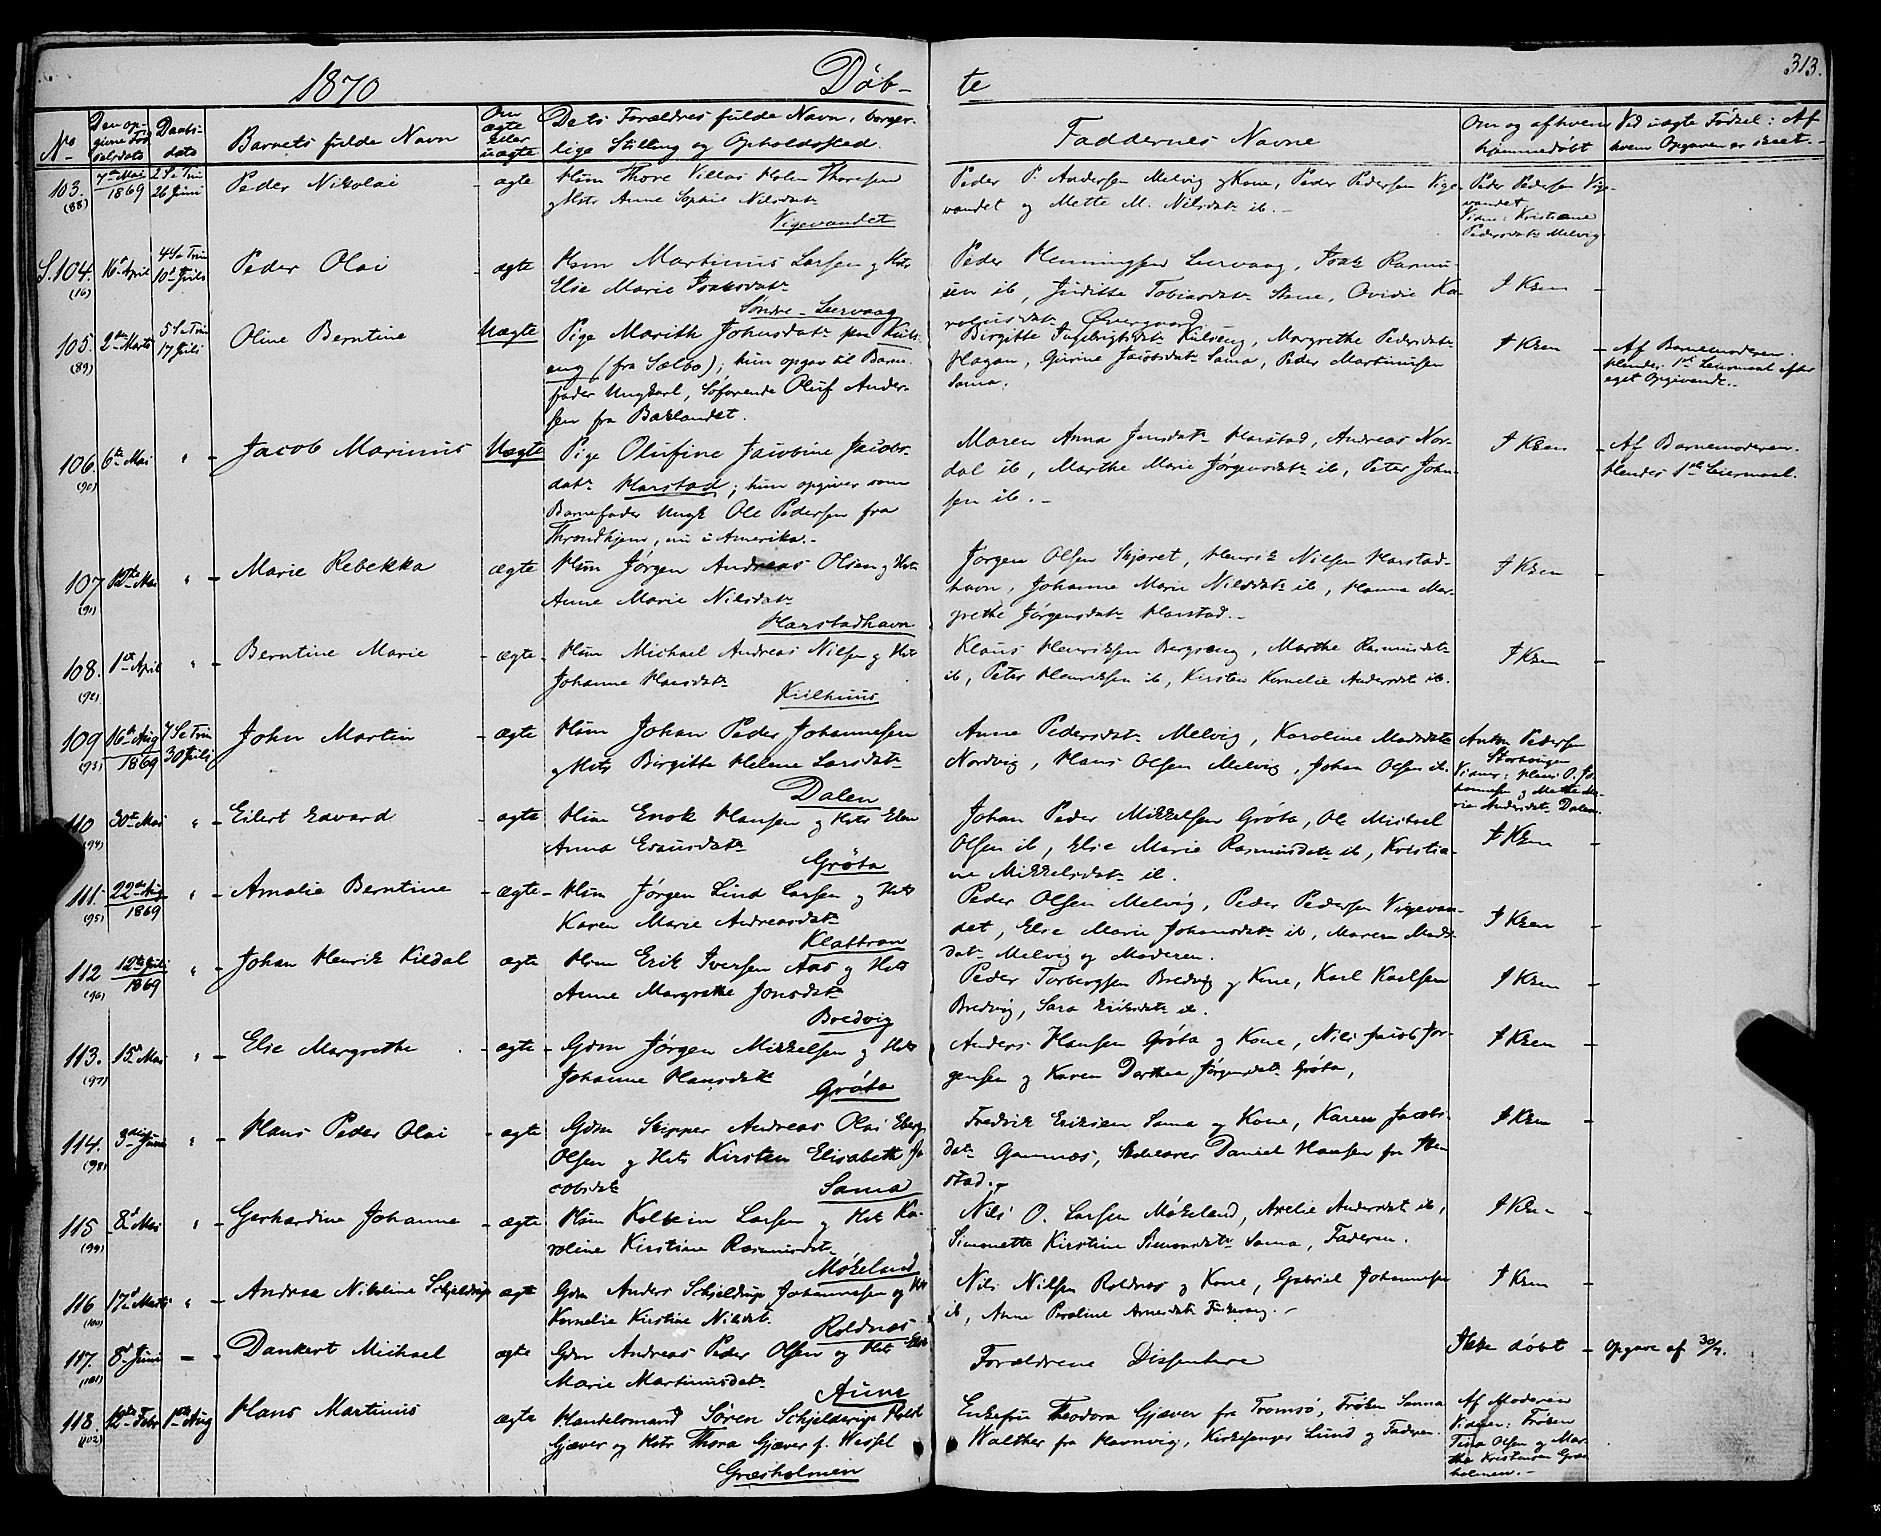 313.
1870 Døbte
No
Den opgivne Fødselsdato
Daabsdato
Barnets fulde Navn
Om ægte eller uægte
Dets Forældres fulde Navn, borgerlige Stilling og Opholdssted.
Faddernes Navne
Om og af hvem hjemmedøbt
Ved uægte Fødsel: Af hvem Opgaven er skeet.
103. (88) 7de Mai 1869 2 S e Trin 26 Juni Peder Nikolai - ægte
Hsm Thore Villas Holm Thoresen
og Hstr Anne Sophie Nilsdatr
Vigevandet
Peder P. Andersen Melvig og Kone, Peder Pedersen Vige-
vandet og Mette M. Nilsdatr ib. -
Peder Pedersen Vige-
vandet
Vidne: Kristiane
Pedersdatr Melvig
S. 104. (16) 16d April 4 S e Trin 10d Juli Peder Olai - ægte
Hsm Martinus Larsen og Hstr
Elie Marie Isaksdatr
Søndre-Lervaag
Peder Henningsen Lervaag, Isak Rasmu-
sen ib, Juditte Tobiasdatr Stene, Ovidie Ka-
rolusdatr Øvergaard
I Krken -
105. (89) 2den Marts 5 S e Trin 17 Juli Oline Berntine Uægte
Pige Marith Johnsdatr paa Kuls-
eng (fra Sælbo); hun opgav til Barne-
fader Ungkarl, Søfarende Oluf Ander-
sen fra Baklandet.
Birgitte Ingebrigtsdatr Kulseng, Margrethe Pedersdatr
Hagan, Gurine Jacobsdatr Sama, Peder Martinussen
Sama.
I Krken -
Af Barnemoderen.
Hendes 1st Leiermaal efter
eget Opgivende.
106. (90) 6te Mai " - Jacob Marinus Uægte
Pige Olufine Jacobine Jacobs-
datr Harstad; hun opgiver som
Barnefader Ungk Ole Pedersen fra
Throndhjem, nu i Amerika. -
Maren Anna Jensdatr Harstad, Andreas Nor-
dal ib, Marthe Marie Jørgensdatr ib, Peter John-
sen ib. -
I Krken -
Af Barnemoderen.
Hendes 1ste Leiermaal.
107 (91) 12te Mai " - Marie Rebekka ægte
Hsm Jørgen Andreas Olsen og Hstr
Anne Marie Nilsdatr
Harstadhavn
Jørgen Olsen Skjæret, Henrik Nilsen Harstad-
havn, Johanne Marie Nilsdatr ib, Hanna Mar-
grethe Jørgensdatr Harstad. -
I Krken -
108. (92) 1st April " - Berntine Marie - ægte -
Hsm Michael Andreas Nilsen og Hstr
Johanne Hansdatr
Kiilhuus
Klaus Henriksen Bergseng, Marthe Rasmusdatr
ib, Peter Henriksen ib, Kirsten Kornelie Andersdatr ib.
I Krken -
109 (93) 16d Aug 1869 7 S e Trin 30 Juli John Martin - ægte
Hsm Johan Peder Johannesen
og Hstr Birgitte Helene Larsdatr
Dalen
Anne Pedersdatr Melvig, Karoline Madsdatr
Nordvig, Hans Olsen Melvig, Johan Olsen ib.
Anton Pedersen
Storhougen
Vidner: Hans O. Jo-
hannesen og Mette Ma-
rie Andersdatr Dalen
110 (94) 30te Mai " - Eilert Edvard - ægte
Hsm Enok Hansen og Hstr Elen
Anna Esausdatr
Grøta
Johan Peder Mikkelsen Grøta, Ole Michael
Olsen ib, Elie Marie Rasmusdatr ib, Kristia-
ne Mikkelsdatr ib.
I Krken -
111. (95) 22de Aug 1869 " - Amalie Berntine - ægte -
Hsm Jørgen Lind Larsen og Hstr
Karen Marie Andreasdatr
Klattran
Peder Olsen Melvig, Peder Pedersen Vigevan-
det, Elie Marie Johansdatr ib, Maren Mads-
datr Melvig og Moderen.
I Krken -
112 (96) 12te Juli 1869 " - Johan Henrik Kildal ægte
Hsm Erik Iversen Aas og Hstr
Anne Margrethe Jonsdatr
Bredvig
Peder Torbergsen Bredvig og Kone, Karl Karlsen
Bredvig, Sara Eriksdatr ib.
I Krken -
113. (97) 15d Mai " - Elie Margrethe - ægte -
Gdm Jørgen Mikkelsen og Hstr
Johanne Hansdatr
Grøta
Anders Hansen Grøta og Kone, Nils Jacob Jør-
gensen og Karen Dorthea Jørgensdatr Grøta,
I Krken -
114. (98) 3die Juni " - Hans Peder Olai - ægte
Gdm Skipper Andreas Olai Eberg
Olsen og Hstr Kirsten Elisabeth Ja-
cobsdatr
Sama
Fredrik Eriksen Sama og Kone, Karen Jacobs-
datr Gamnæs, Skolelærer Daniel Hansen fra Ren-
stad. -
I Krken -
115 (99) 8d Mai " - Gerhardine Johanne - ægte
Hsm Kolbein Larsen og Hstr Ka-
roline Kirstine Rasmusdatr
Møkeland
Nils O. Larsen Møkeland, Amelie Andersdatr ib,
Simonette Kirstine Simonsdatr Sama, Faderen.
I Krken -
116 (100) 17d Marts " - Andrea Nikoline Schjelderup ægte
Gdm Anders Schjeldrup Johannesen og Hstr
Kornelie Kirstine Nilsdtr.
Roldnæs
Nils Nilsen Roldnæs og Kone, Gabriel Johannesen
ib, Anne Peroline Arnesdatr. -
I Krken -
117. (101) 8d Juni - - Dankert Michael ægte
Gdm Andreas Peder Olsen og Hst Elen
Marie Martinusdatr
Aune
Forældrene Dissentere
Ikke døbt -
Opgave af 30/7.
118. (102) 12te Febr 1ste Aug Hans Martinus ægte
Handelsmand Søren Schjelderup Holst
Gjæver og Hstr Thora Gjæver f. Wessel
Græsholmen
Enkefru Theodora Gjæver fra Tromsø, Frøken Sanna
Walther fra Havnvig, Kirkesanger Lund og Faderen.
Af Moderen
Vidner: Frøken
Tina Olsen og Mar-
the Kristensen Græs-
holmen. -